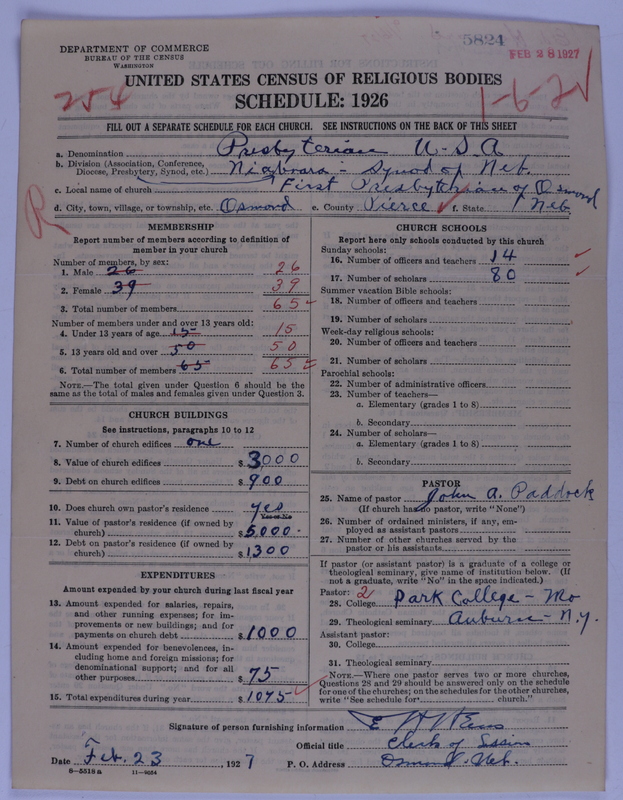 5824
FEB 28 1927
DEPARTMENT OF COMMERCE
BUREAU OF THE CENSUS
WASHINGTON
UNITED STATES CENSUS OF RELIGIOUS BODIES
SCHEDULE: 1926
254
1-6-2
FILL OUT A SEPARATE SCHEDULE FOR EACH CHURCH. SEE INSTRUCTIONS ON THE BACK OF THIS SHEET
a. Denomination Presbyterian U-S-A
b. Division (Association, Conference, Diocese, Presbytery, Synod, etc.) Niobrara - Synod of Neb.
c. Local name of church First Presbyterian of Osmond
d. City, town, village, or township, etc. Osmond e. County Pierce f. State Neb.
R
MEMBERSHIP
Report number of members according to definition of
member in your church
Number of members, by sex:
1. Male 26 26
2. Female 39 39
3. Total number of members 65
Number of members under and over 13 years old:
4. Under 13 years of age 15 15
5. 13 years old and over 50 50
6. Total number of members 65 65
NOTE.—The total given under Question 6 should be
same as the total of males and females given under Question 3.
CHURCH BUILDINGS
See instructions, paragraphs 10 to 12
7. Number of church edifices one
8. Value of church edifices $ 3000
9. Debt on church edifices $ 900
10. Does church own pastor's residence yes
Yes or No
11. Value of pastor's residence (if owned by
church) $ 5,000-
12. Debt on pastor's residence (if owned by
church) $ 1300
EXPENDITURES
Amount expended by your church during last fiscal year
13. Amount expended for salaries, repairs,
and other running expenses; for im-
provements or new buildings; and for
payments on church debt $ 1000
14. Amount expended for benevolences, in-
cluding home and foreign missions; for
denominational support; and for all
other purposes $ 75
15. Total expenditures during year $ 1075
CHURCH SCHOOLS
Report here only schools conducted by this church
Sunday schools:
16. Number of officers and teachers 14
17. Number of scholars 80
Summer vacation Bible schools:
18. Number of officers and teachers
19. Number of scholars
Week-day religious schools:
20. Number of officers and teachers
21. Number of scholars
Parochial schools:
22. Number of administrative officers
23. Number of teachers—
a. Elementary (grades 1 to 8)
b. Secondary
24. Number of scholars—
a. Elementary (grades 1 to 8)
b. Secondary
PASTOR
25. Name of pastor John A. Paddock
(If church has no pastor, write "None")
26. Number of ordained ministers, if any, em-
ployed as assistant pastors
27. Number of other churches served by the
pastor or his assistants
If pastor (or assistant pastor) is a graduate of a college or
theological seminary, give name of institution below. (If
not a graduate, write "No" in the space indicated.)
Pastor: 2
28. College Park College - Mo
29. Theological seminary Auburn - N.Y.
Assistant pastor:
30. College
31. Theological seminary
NOTE.—Where one pastor serves two or more churches,
Questions 28 and 29 should be answered only on the schedule
for one of the churches; on the schedules for the other churches,
write "See schedule for church."
Signature of person furnishing information
Official title Clerk of Session
Date Feb. 23, 1927 P. O. Address Osmond - Neb.
8-5518 a 11-9054